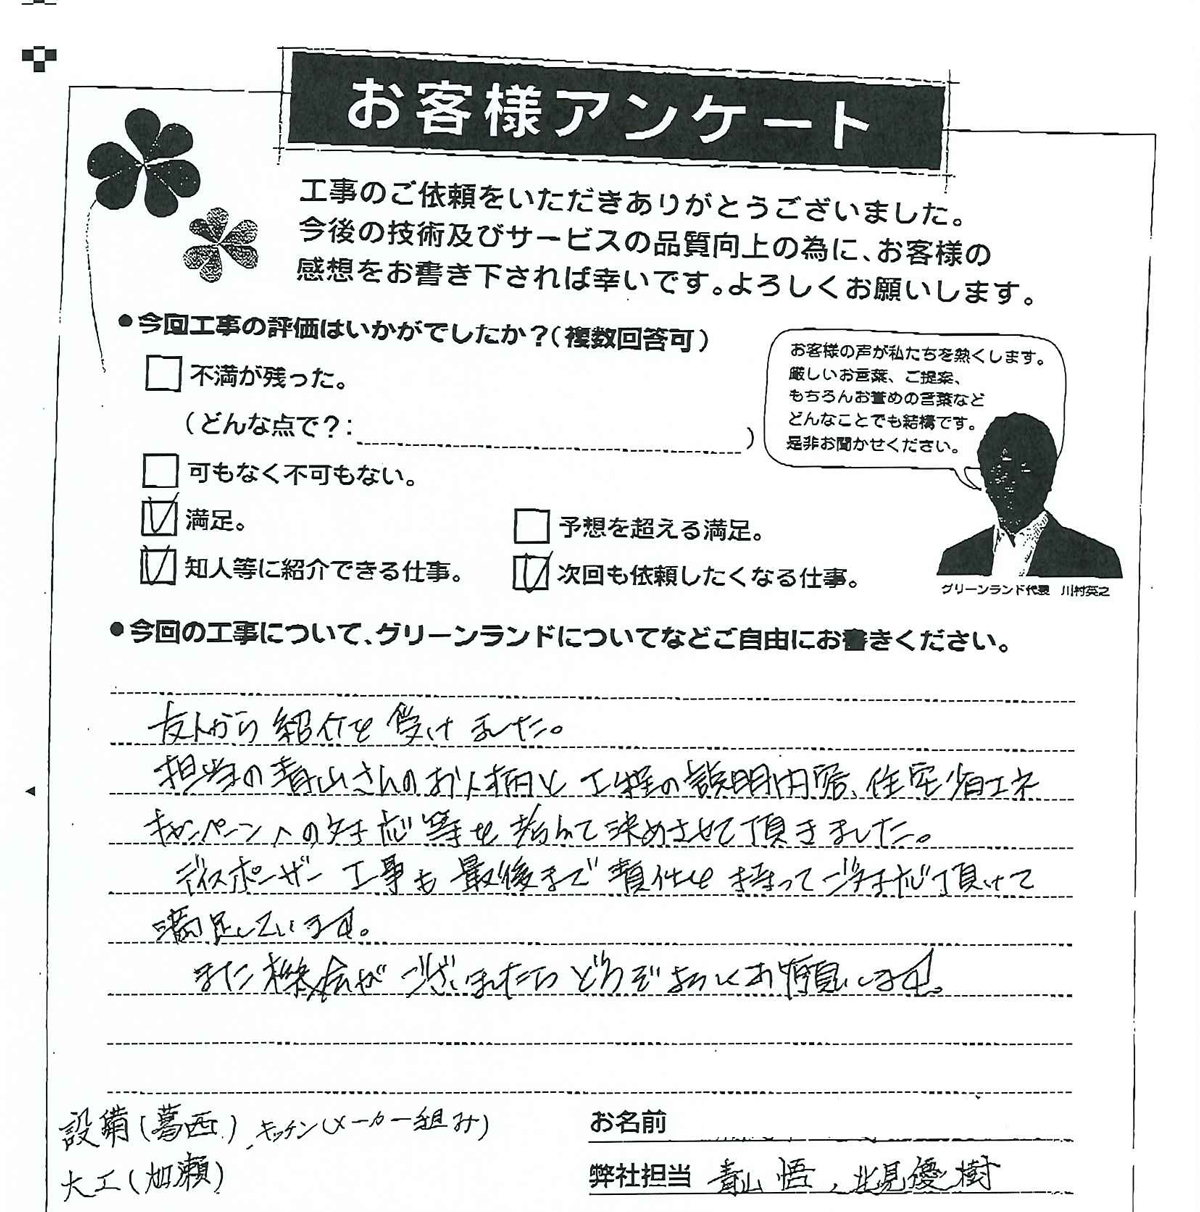 お客様アンケート
工事のご依頼をいただきありがとうございました。
今後の技術及びサービスの品質向上の為に、お客様の
感想をお書き下されば幸いです。よろしくお願いします。
●今回工事の評価はいかがでしたか？（複数回答可）
不満が残った。
（どんな点で？：　　　）
可もなく不可もない。
満足。
予想を超える満足。
知人等に紹介できる仕事。
次回も依頼したくなる仕事。
お客様の声が私たちを熱くします。
厳しいお言葉、ご提案、
もちろんお誉めの言葉など
どんなことでも結構です。
是非お聞かせください。
グリーンランド代表　川村英之
●今回の工事について、グリーンランドについてなどご自由にお書きください。
友人から紹介を受けました。
担当の青山さんのお人柄と工程の説明内容、住宅省エネ
キャンペーンへの対応等を含めて決めさせて頂きました。
ディスポーザー工事も最後まで責任を持ってご対応頂けて
満足しています。
また機会がございましたらどうぞよろしくお願いします。
設備（葛西）キッチン（メーカー組み）
大工（加瀬）
お名前
弊社担当　青山 悟、北見優樹